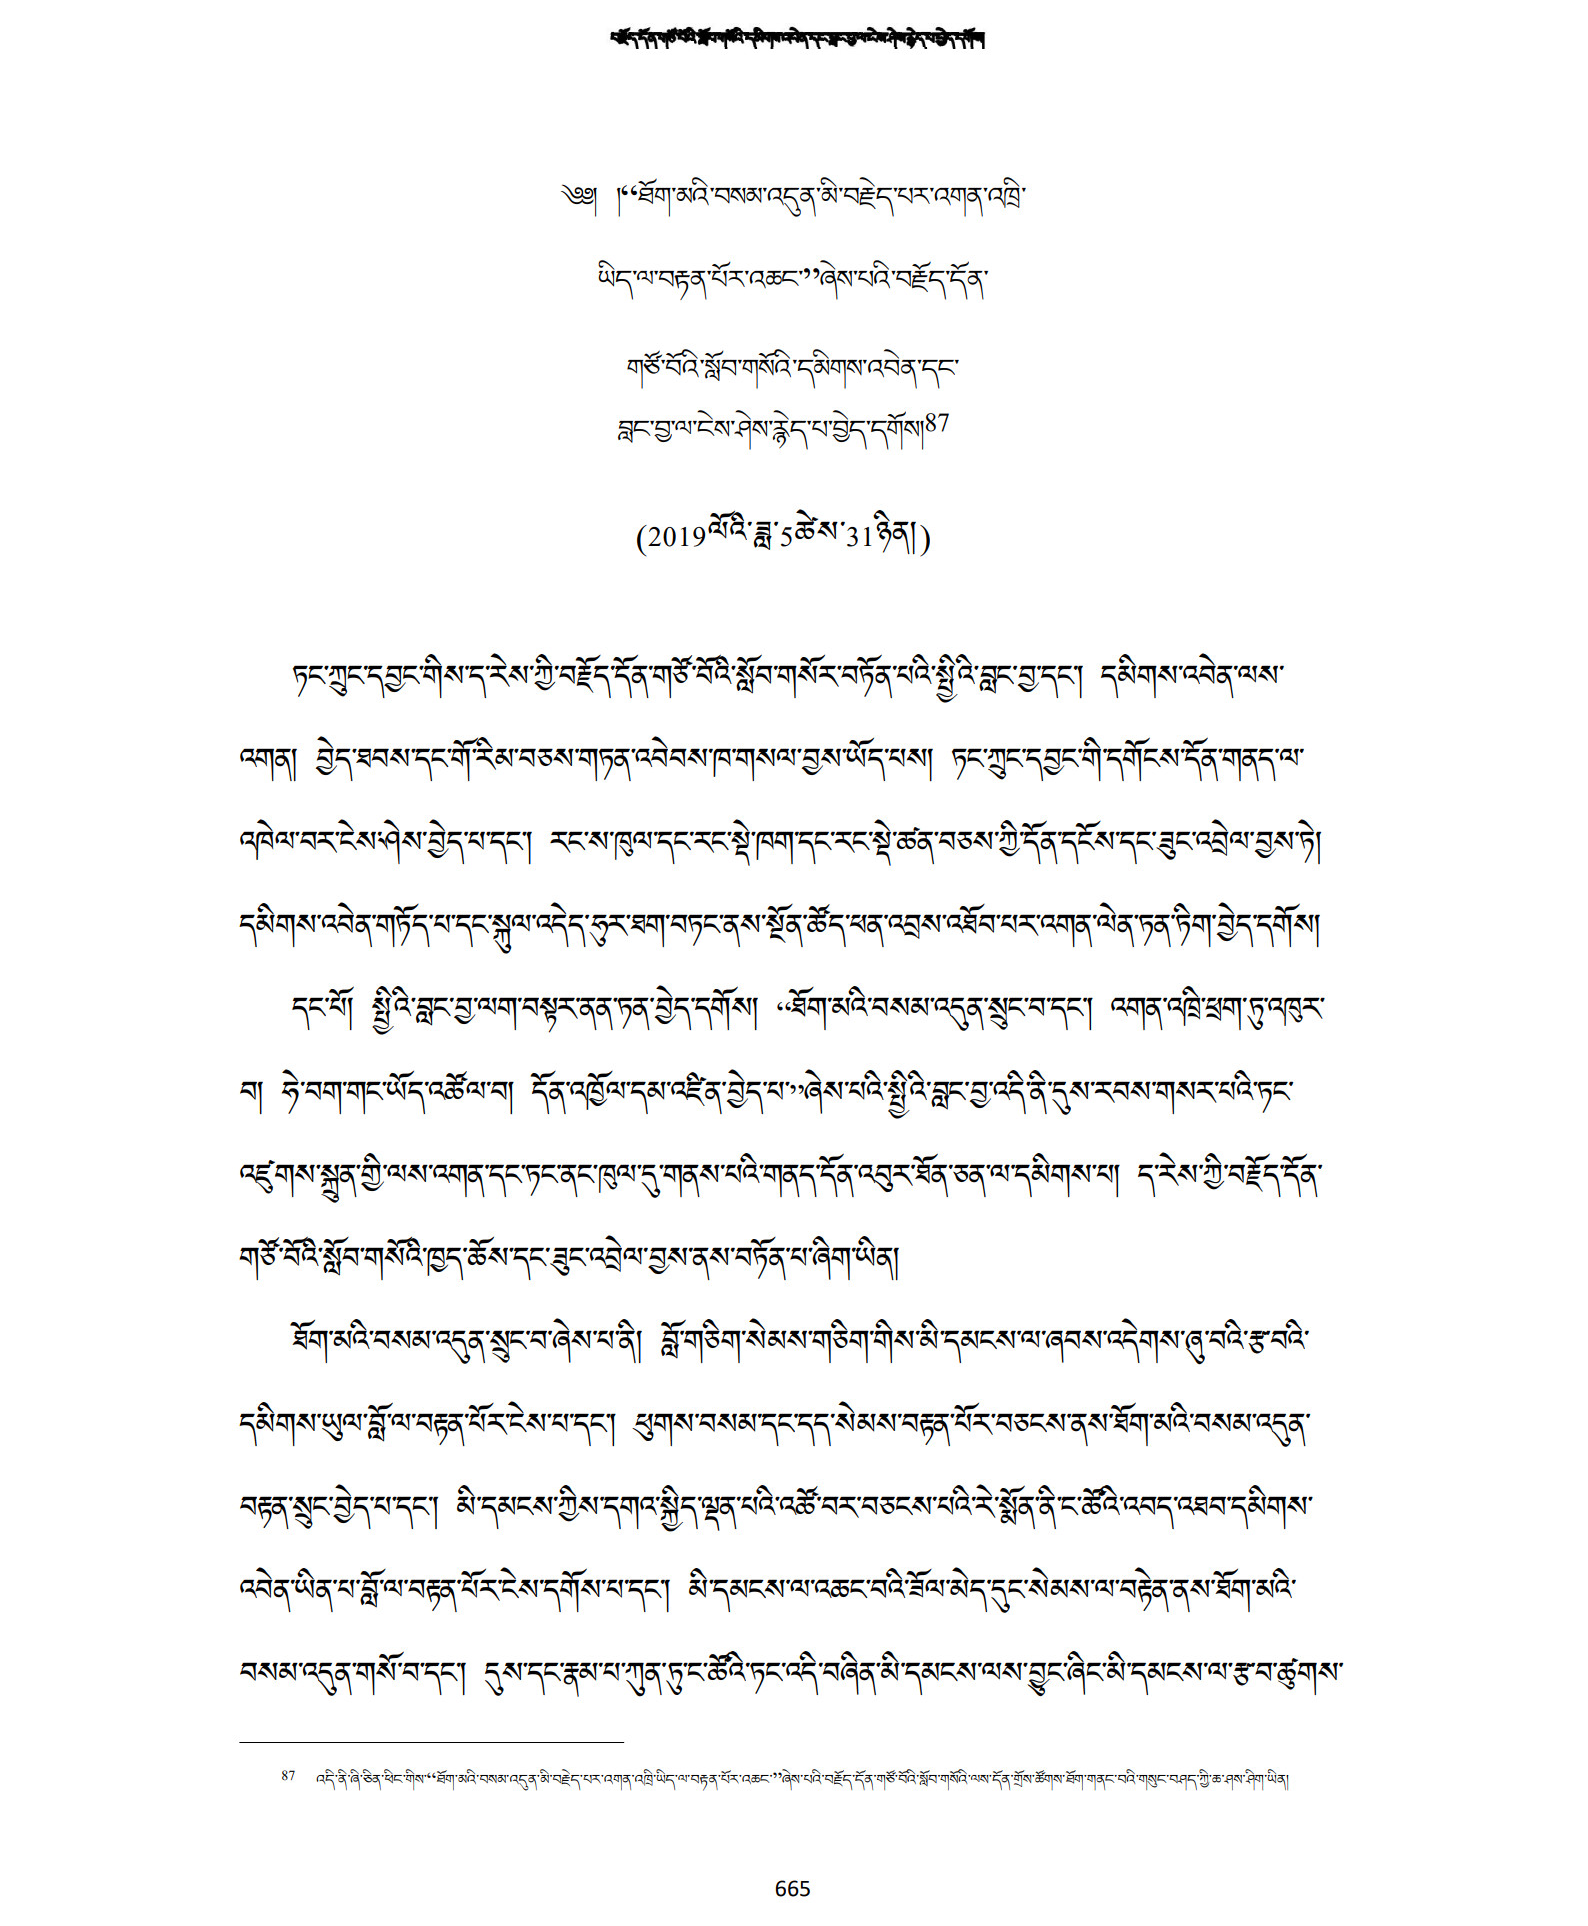 བརྗོད་དོན་གཙོ་བོའི་སློབ་གསོའི་དམིགས་འབེན་དང་བླང་བྱ་ལ་ངེས་ཤེས་རྙེད་པ་བྱེད་དགོས།
༄༅། །“ཐོག་མའི་བསམ་འདུན་མི་བརྗེད་པར་འགན་འཁྲི་
ཡིད་ལ་བརྟན་པོར་འཆང་”ཞེས་པའི་བརྗོད་དོན་
གཙོ་བོའི་སློབ་གསོའི་དམིགས་འབེན་དང་
བླང་བྱ་ལ་ངེས་ཤེས་རྙེད་པ་བྱེད་དགོས།87
(2019ལོའི་ཟླ་5ཚེས་31ཉིན།)
ཏང་ཀྲུང་དབྱང་གིས་ད་རེས་ཀྱི་བརྗོད་དོན་གཙོ་བོའི་སློབ་གསོར་བཏོན་པའི་སྤྱིའི་བླང་བྱ་དང་། དམིགས་འབེན་ལས་
འགན། བྱེད་ཐབས་དང་གོ་རིམ་བཅས་གཏན་འབེབས་ཁ་གསལ་བྱས་ཡོད་པས། ཏང་ཀྲུང་དབྱང་གི་དགོངས་དོན་གནད་ལ་
འཁེལ་བར་ངེས་ཤེས་བྱེད་པ་དང་། རང་ས་ཁུལ་དང་རང་སྡེ་ཁག་དང་རང་སྡེ་ཚན་བཅས་ཀྱི་དོན་དངོས་དང་ཟུང་འབྲེལ་བྱས་ཏེ།
དམིགས་འབེན་གཏོད་པ་དང་སྐུལ་འདེད་ཧུར་ཐག་བཏང་ནས་སྔོན་ཚོད་ཕན་འབྲས་འཐོབ་པར་འགན་ལེན་ཏན་ཏིག་བྱེད་དགོས།
དང་པོ། སྤྱིའི་བླང་བྱ་ལག་བསྟར་ནན་ཏན་བྱེད་དགོས། “ཐོག་མའི་བསམ་འདུན་སྲུང་བ་དང་། འགན་འཁྲི་ཕྲག་ཏུ་འཁུར་
བ། ཧེ་བག་གང་ཡོད་འཚོལ་བ། དོན་འཁྱོལ་དམ་འཛིན་བྱེད་པ་”ཞེས་པའི་སྤྱིའི་བླང་བྱ་འདི་ནི་དུས་རབས་གསར་པའི་ཏང་
འཛུགས་སྐྲུན་གྱི་ལས་འགན་དང་ཏང་ནང་ཁུལ་དུ་གནས་པའི་གནད་དོན་འབུར་ཐོན་ཅན་ལ་དམིགས་པ། ད་རེས་ཀྱི་བརྗོད་དོན་
གཙོ་བོའི་སློབ་གསོའི་ཁྱད་ཆོས་དང་ཟུང་འབྲེལ་བྱས་ནས་བཏོན་པ་ཞིག་ཡིན།
ཐོག་མའི་བསམ་འདུན་སྲུང་བ་ཞེས་པ་ནི། བློ་གཅིག་སེམས་གཅིག་གིས་མི་དམངས་ལ་ཞབས་འདེགས་ཞུ་བའི་རྩ་བའི་
དམིགས་ཡུལ་བློ་ལ་བརྟན་པོར་ངེས་པ་དང་། ཕུགས་བསམ་དང་དད་སེམས་བརྟན་པོར་བཅངས་ནས་ཐོག་མའི་བསམ་འདུན་
བརྟན་སྲུང་བྱེད་པ་དང་། མི་དམངས་ཀྱིས་དགའ་སྐྱིད་ལྡན་པའི་འཚོ་བར་བཅངས་པའི་རེ་སྨོན་ནི་ང་ཚོའི་འབད་འཐབ་དམིགས་
འབེན་ཡིན་པ་བློ་ལ་བརྟན་པོར་ངེས་དགོས་པ་དང་། མི་དམངས་ལ་འཆང་བའི་ཟོལ་མེད་དུང་སེམས་ལ་བརྟེན་ནས་ཐོག་མའི་
བསམ་འདུན་གསོ་བ་དང་། དུས་དང་རྣམ་པ་ཀུན་ཏུ་ང་ཚོའི་ཏང་འདི་བཞིན་མི་དམངས་ལས་བྱུང་ཞིང་མི་དམངས་ལ་རྩ་བ་ཚུགས་
87 འདི་ནི་ཞི་ཅིན་ཕིང་གིས་“ཐོག་མའི་བསམ་འདུན་མི་བརྗེད་པར་འགན་འཁྲི་ཡིད་ལ་བརྟན་པོར་འཆང་”ཞེས་པའི་བརྗོད་དོན་གཙོ་བོའི་སློབ་གསོའི་ལས་དོན་གྲོས་ཚོགས་ཐོག་གནང་བའི་གསུང་བཤད་ཀྱི་ཆ་ཤས་ཤིག་ཡིན།
665